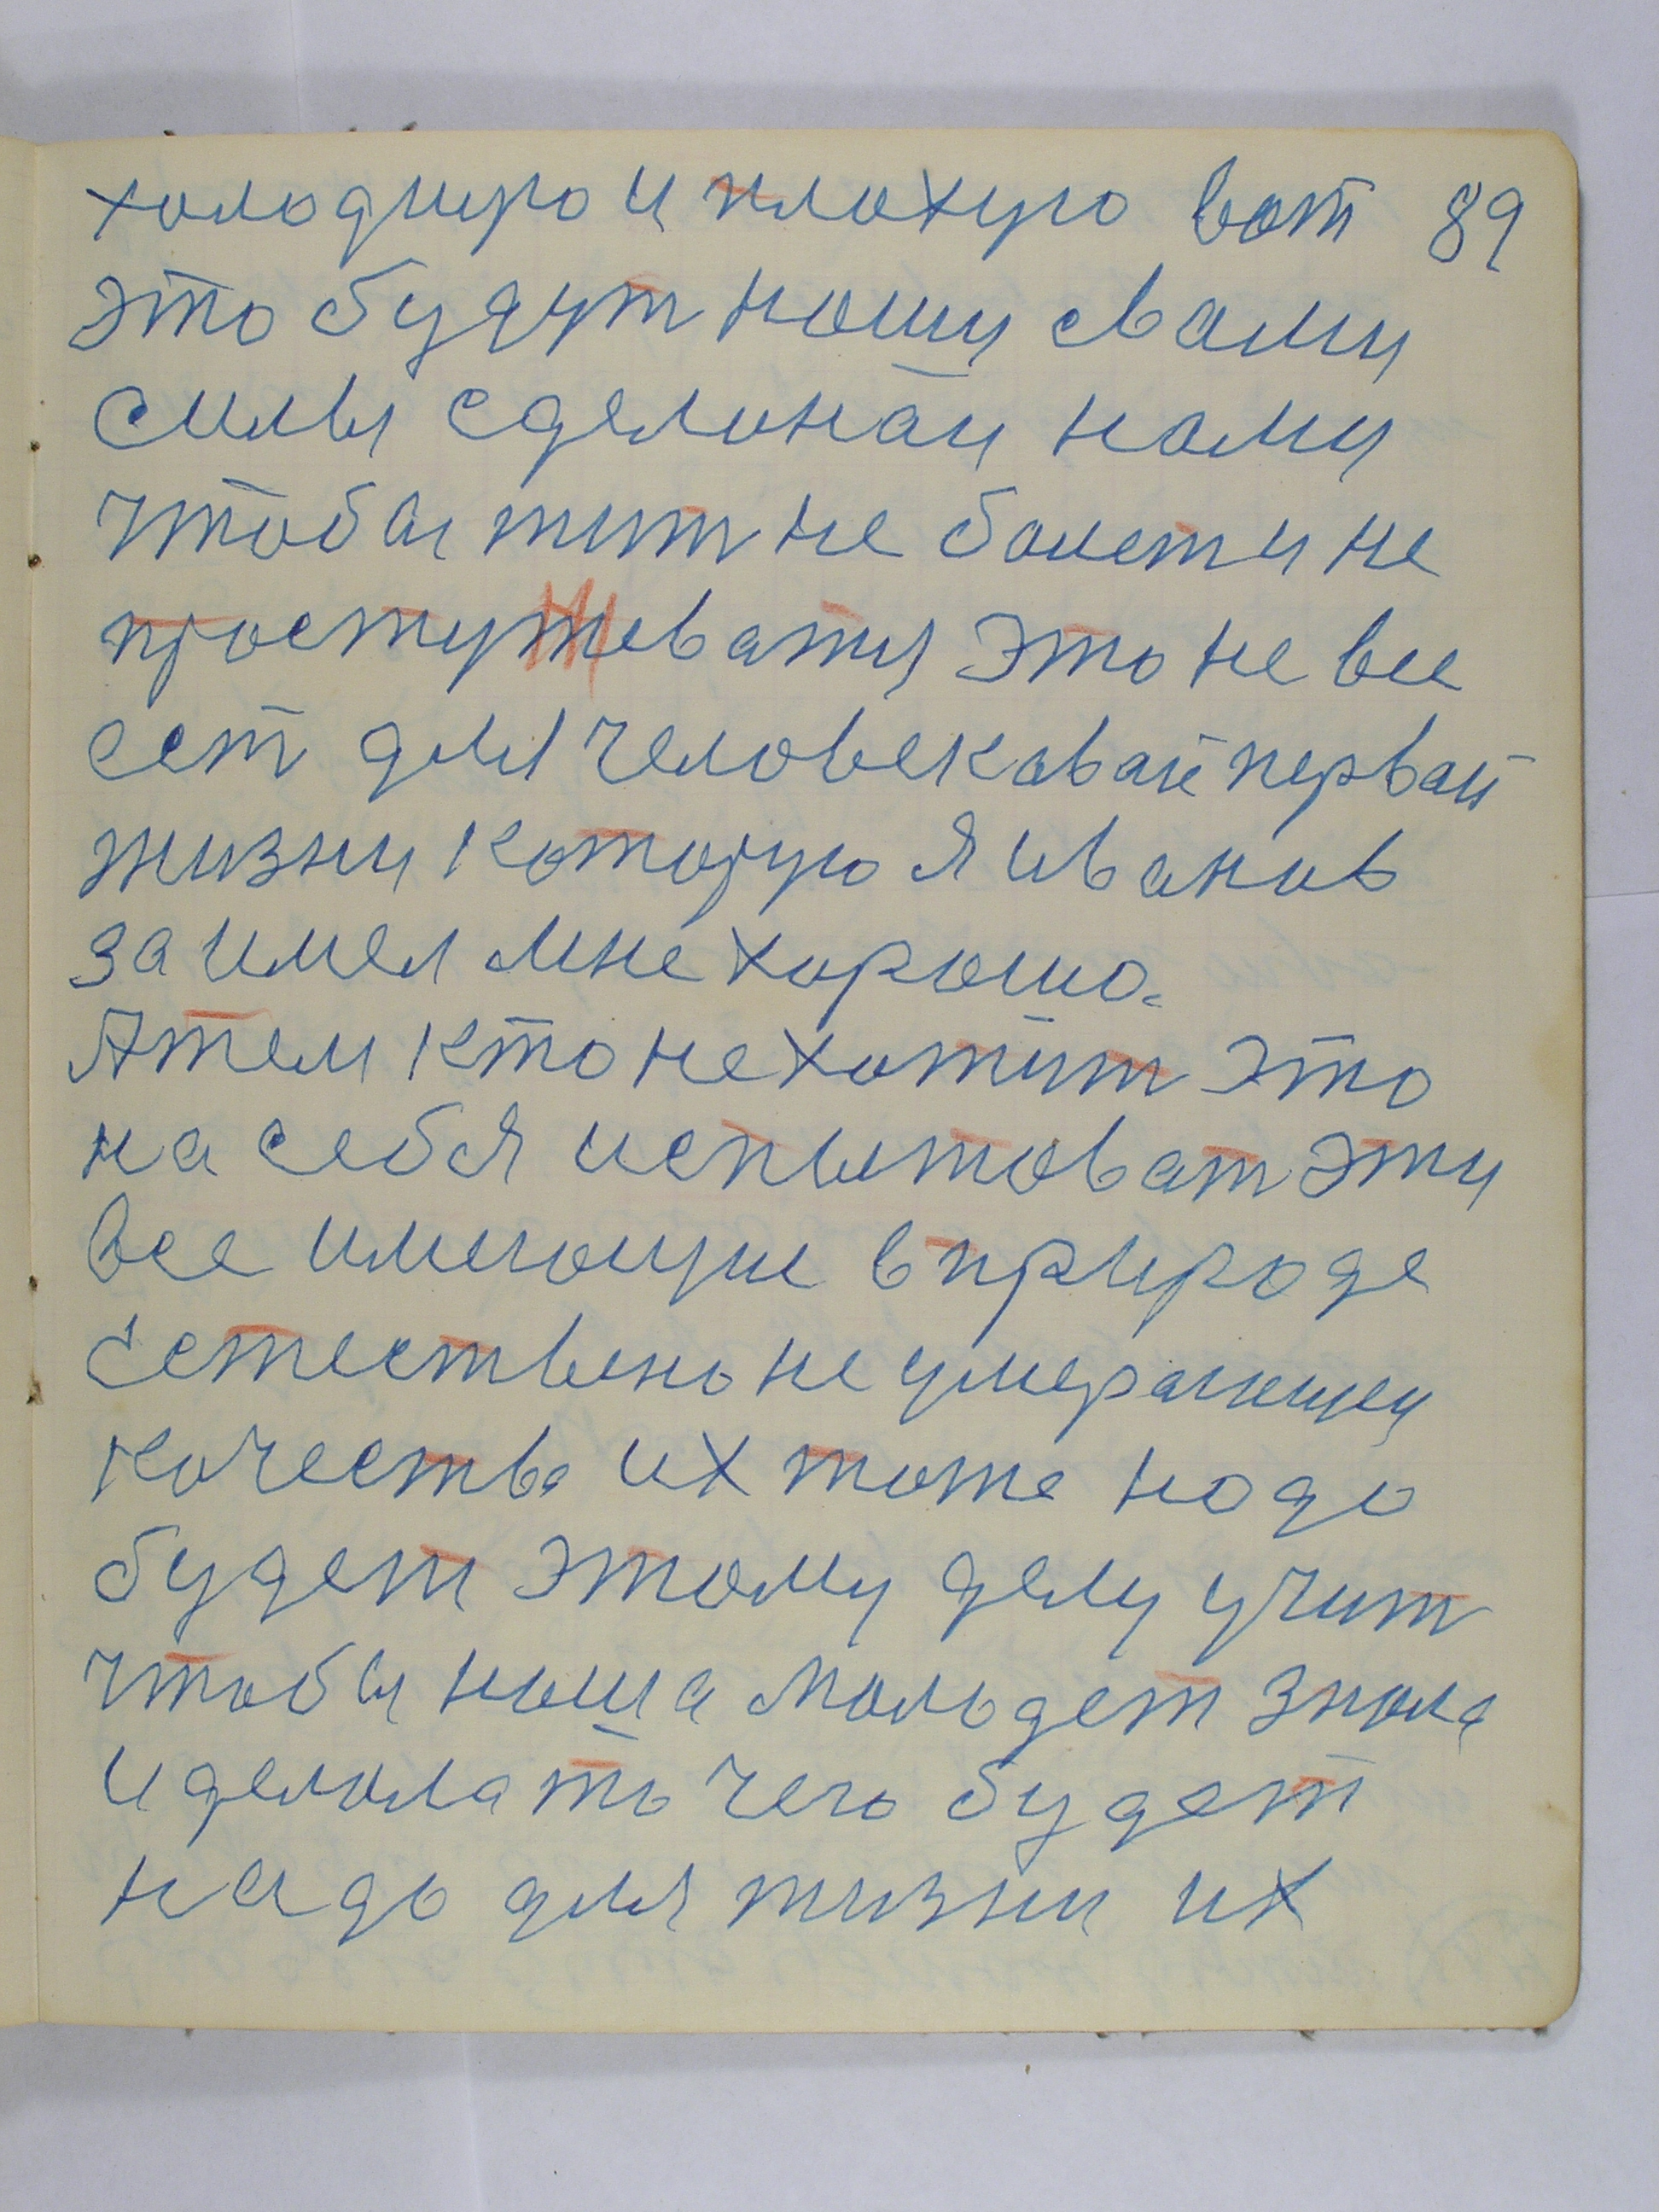 холодную и плохую вот 89
это будут нашы свами
силы сделанаи нами
чтобы тит не болет и не
простужеватця это не все
сет для человекавай первай
жизни которую я иванов
заимел мне хорошо.
А тем кто не хотит это
на себя испытоват эти
все имеющие в природе
естествено не умерающеи
качества их тоже надо
будет этому делу учит
чтобы наша молодет знала
и делала то чего будет
надо для жизни их